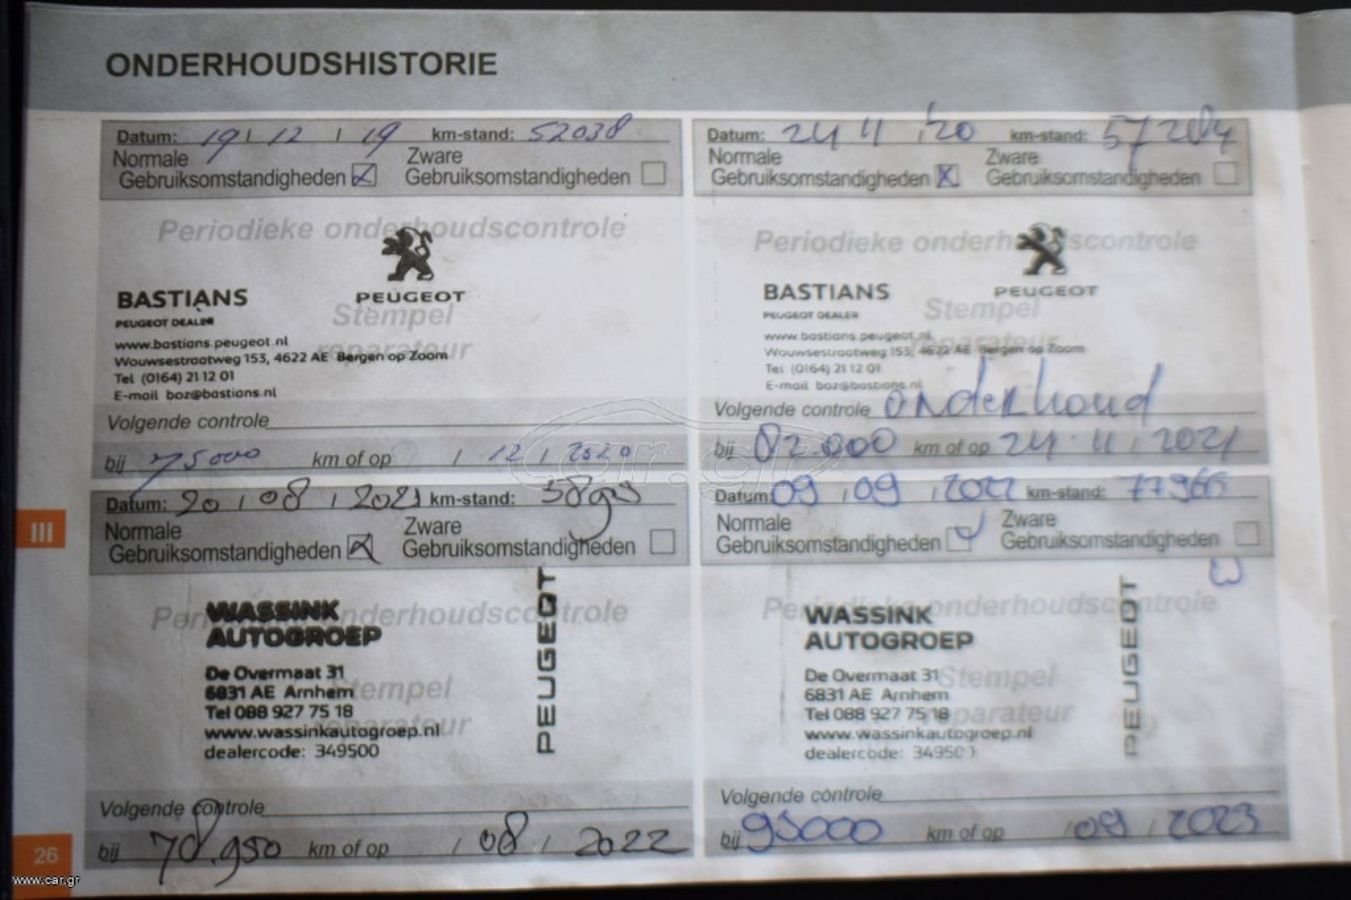 ONDERHOUDSHISTORIE
Datum: 19 / 12 / 19 km-stand: 52038
Normale Zware
Gebruiksomstandigheden Gebruiksomstandigheden
Periodieke onderhoudscontrole
PEUGEOT
BASTIANS
PEUGEOT DEALER
Stempel
reparateur
www.bastians.peugeot.nl
Wouwsestraatweg 153, 4622 AE Bergen op Zoom
Tel (0164) 21 12 01
E-mail boz@bastians.nl
Volgende controle
bij 75000 km of op / 12 / 2020
Datum: 24 11 '20 km-stand: 57284
Normale Zware
Gebruiksomstandigheden Gebruiksomstandigheden
Periodieke onderhoudscontrole
PEUGEOT
BASTIANS
PEUGEOT DEALER
Stempel
reparateur
www.bastians.peugeot.nl
Wouwsestraatweg 153, 4622 AE Bergen op Zoom
Tel (0164) 21 12 01
E-mail boz@bastians.nl
Volgende controle onderhoud
bij 82.000 km of op 24 11 / 2021
car.gr
III
Datum: 20 / 08 / 2021 km-stand:
Normale Zware
Gebruiksomstandigheden Gebruiksomstandigheden
Periodieke onderhoudscontrole
WASSINK
AUTOGROEP
PEUGEOT
De Overmaat 31
6831 AE Arnhem
Stempel
Tel 088 927 75 18
reparateur
www.wassinkautogroep.nl
dealercode: 349500
Volgende controle
bij 78.950 km of op / 08 / 2022
Datum: 09 / 09 / 2022 km-stand: 77966
Normale Zware
Gebruiksomstandigheden Gebruiksomstandigheden
Periodieke onderhoudscontrole
WASSINK
AUTOGROEP
PEUGEOT
De Overmaat 31
6831 AE Arnhem
Stempel
Tel 088 927 75 18
reparateur
www.wassinkautogroep.nl
dealercode: 349500
Volgende controle
bij 95000 km of op / 09 / 2023
26
www.car.gr